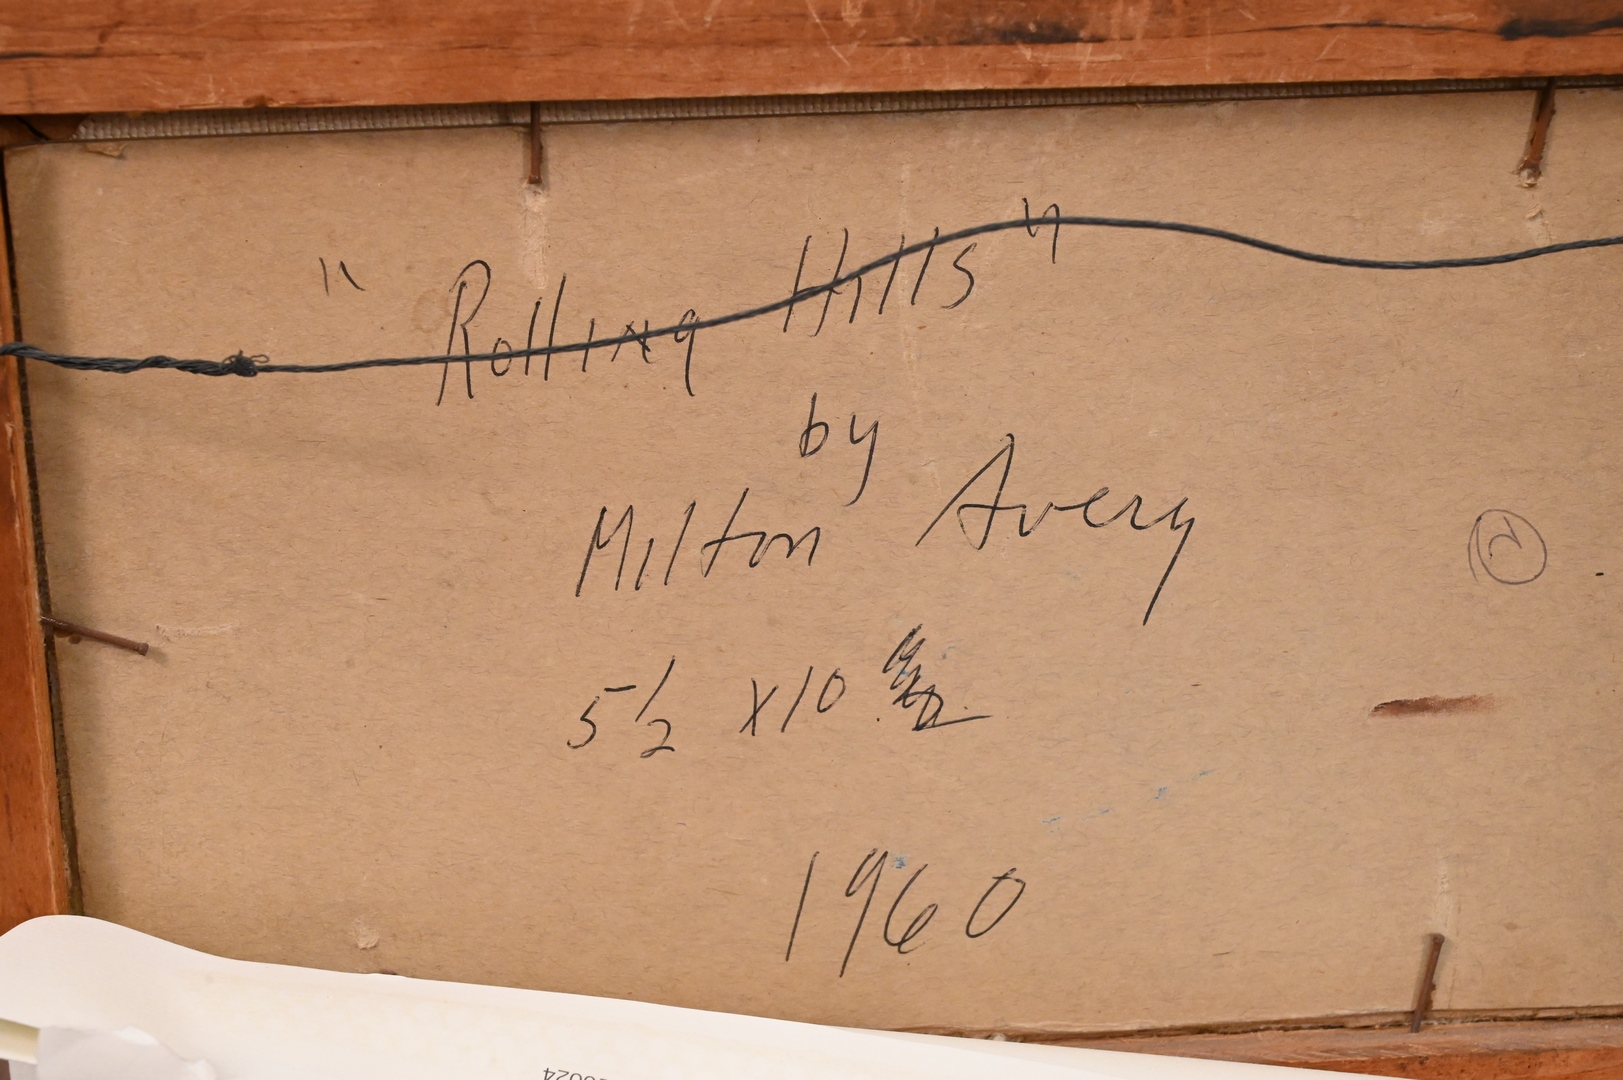 "Rolling Hills"
by
Milton Avery
5 1/2 x 10
1960